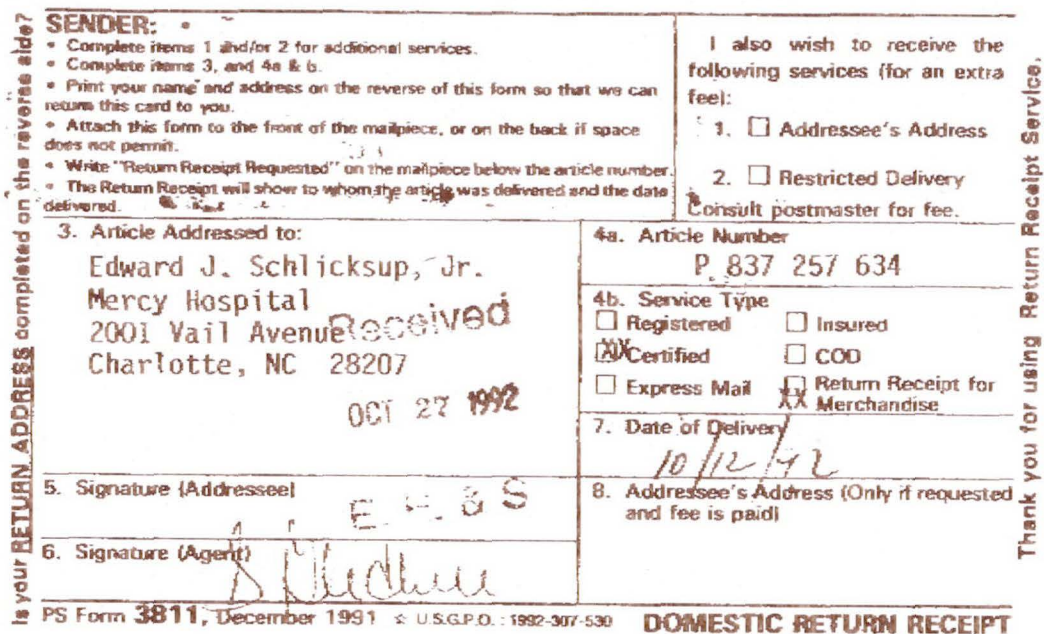 Is your RETURN ADDRESS completed on the reverse side?
SENDER:
• Complete items 1 and/or 2 for additional services.
• Complete items 3, and 4a & b.
• Print your name and address on the reverse of this form so that we can
return this card to you.
• Attach this form to the front of the mailpiece, or on the back if space
does not permit.
• Write "Return Receipt Requested" on the mailpiece below the article number.
• The Return Receipt will show to whom the article was delivered and the date
delivered.
I also wish to receive the
following services (for an extra
fee):
1. ☐ Addressee's Address
2. ☐ Restricted Delivery
Consult postmaster for fee.
3. Article Addressed to:
Edward J. Schlicksup, Jr.
Mercy Hospital
2001 Vail Avenue
Charlotte, NC 28207
Received
OCT 27 1992
4a. Article Number
P 837 257 634
4b. Service Type
☐ Registered ☐ Insured
XX Certified ☐ COD
☐ Express Mail XX Return Receipt for
Merchandise
7. Date of Delivery
10/12/92
5. Signature (Addressee)
E H & S
8. Addressee's Address (Only if requested
and fee is paid)
6. Signature (Agent)
PS Form 3811, December 1991 ☆ U.S.G.P.O. : 1992-307-530 DOMESTIC RETURN RECEIPT
Thank you for using Return Receipt Service.